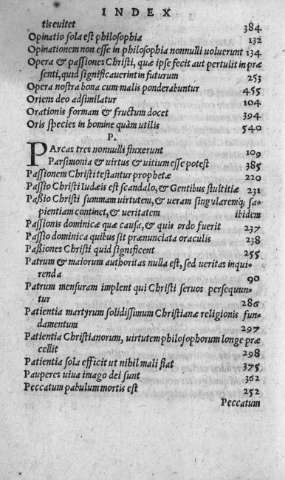 INDEX
tis euitet 384
Opinatio sola est philosophia 132
Opinationem non esse in philosophia nonnulli uoluerunt 134
Opera & passiones Christi, quæ ipse fecit aut pertulit in præ
senti, quid significauerint in futurum 253
Opera nostra bona cum malis ponderabuntur 455
Oriens deo adsimilatur 104
Orationis formam & fructum docet 394
Oris species in homine quàm utilis 540
P.
PArcas tres nonnulli finxerunt 109
Parsimonia & uirtus & uitium esse potest 385
Passionem Christi testantur prophetæ 229
Passio Christi Iudæis est scandalo, & Gentibus stultitiæ 231
Passio Christi summam uirtutem, & ueram singularemq; sa-
pientiam continet, & ueritatem ibidem
Passionis dominicæ quæ causa, & quis ordo fuerit 237
Passio dominica quibus sit prænunciata oraculis 238
Passiones Christi quid significent 255
Patrum & maiorum authoritas nulla est, sed ueritas inqui-
renda 90
Patrum mensuram implent qui Christi seruos persequun-
tur 286
Patientia martyrum solidissimum Christianæ religionis fun-
damentum 297
Patientia Christianorum, uirtutem philosophorum longe præ
cellit 298
Patientia sola efficit ut nihil mali fiat 375
Pauperes uiua imago dei sunt 362
Peccatum pabulum mortis est 252
Peccatum